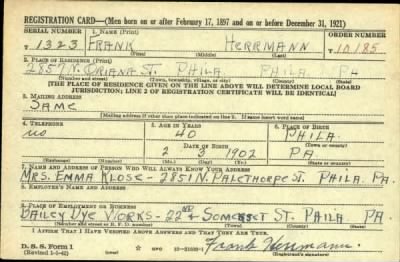 REGISTRATION CARD—(Men born on or after February 17, 1897 and on or before December 31, 1921)
SERIAL NUMBER 1. NAME (Print) ORDER NUMBER
T 1323 FRANK HERRMANN T 10185
(First) (Middle) (Last)
2. PLACE OF RESIDENCE (Print)
2857 N. ORIANA ST. PHILA PHILA. PA
(Number and street) (Town, township, village, or city) (County) (State)
[THE PLACE OF RESIDENCE GIVEN ON THE LINE ABOVE WILL DETERMINE LOCAL BOARD
JURISDICTION; LINE 2 OF REGISTRATION CERTIFICATE WILL BE IDENTICAL]
3. MAILING ADDRESS
SAME
[Mailing address if other than place indicated on line 2. If same insert word same]
4. TELEPHONE 5. AGE IN YEARS 6. PLACE OF BIRTH
NO 40 PHILA.
DATE OF BIRTH (Town or county)
2 3 1902 PA
(Exchange) (Number) (Mo.) (Day) (Yr.) (State or country)
7. NAME AND ADDRESS OF PERSON WHO WILL ALWAYS KNOW YOUR ADDRESS
MRS. EMMA KLOSE - 2851 N. PALETHORPE ST. PHILA. PA.
8. EMPLOYER'S NAME AND ADDRESS
9. PLACE OF EMPLOYMENT OR BUSINESS
DAILEY DYE WORKS - 22ND & SOMERSET ST. PHILA PA.
(Number and street or R. F. D. number) (Town) (County) (State)
I AFFIRM THAT I HAVE VERIFIED ABOVE ANSWERS AND THAT THEY ARE TRUE.
D. S. S. Form 1
(Revised 1-1-42) GPO Frank Herrmann